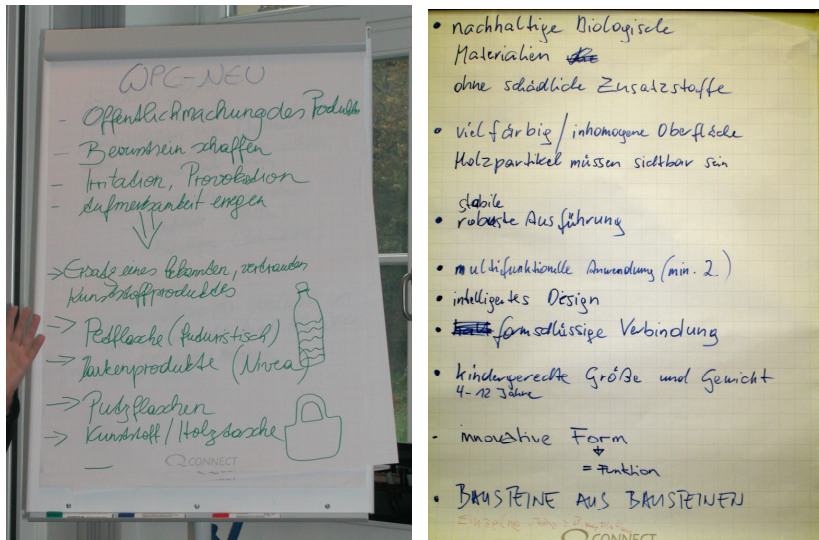 WPC-NEU
- Öffentlichmachung des Produktes
- Bewusstsein schaffen
- Irritation, Provokation
- Aufmerksamkeit erregen
→ Ersatz eines bekannten, vertrauten
Kunststoffproduktes
→ Petflasche (futuristisch)
→ Markenprodukte (Nivea)
→ Putzflaschen
→ Kunststoff/Holztasche
CONNECT
• nachhaltige Biologische
Materialien
ohne schädliche Zusatzstoffe
• vielfärbig/inhomogene Oberfläche
Holzpartikel müssen sichtbar sein
stabile
• robuste Ausführung
• multifunktionelle Anwendung (min. 2)
• intelligentes Design
• formschlüssige Verbindung
• kindergerechte Größe und Gewicht
4-12 Jahre
- innovative Form
= Funktion
• BAUSTEINE AUS BAUSTEINEN
CONNECT